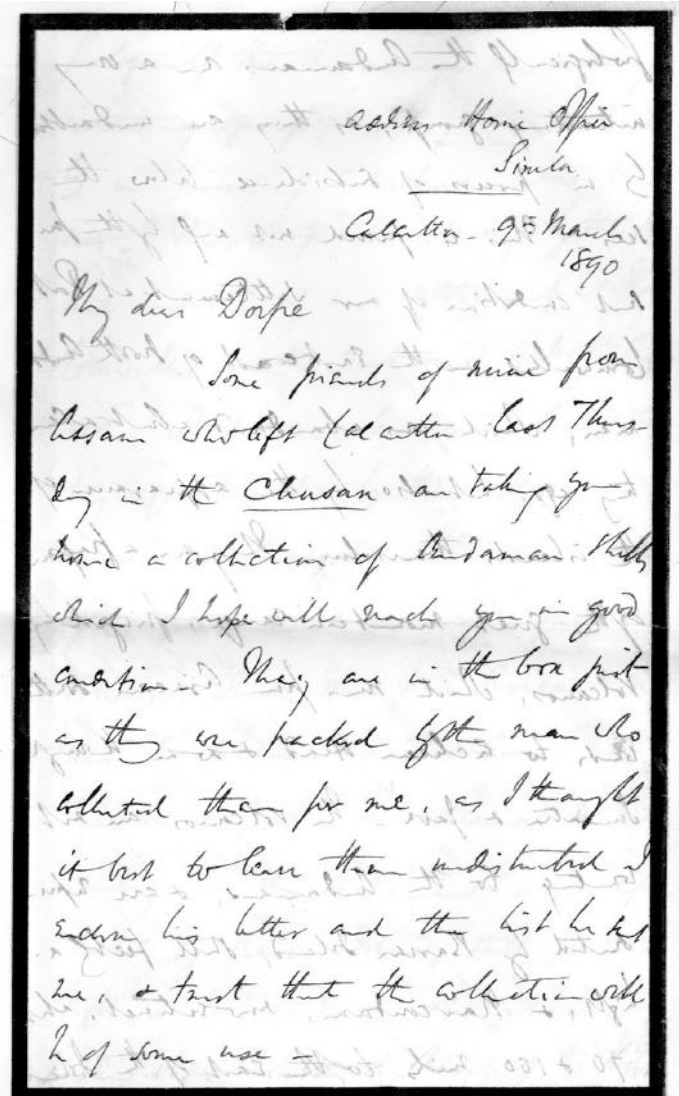 address Home Office
Simla
Calcutta 9th March
1890
My dear
Some friends of mine from
Assam who left Calcutta last Thurs-
day in the Chusan are taking you
home a collection of Andaman shells
which I hope will reach you in good
condition. They are in the box just
as they were packed by the man who
collected them for me, as I thought
it best to leave them undisturbed I
enclose his letter and the list he sent
me, & trust that the collection will
be of some use -